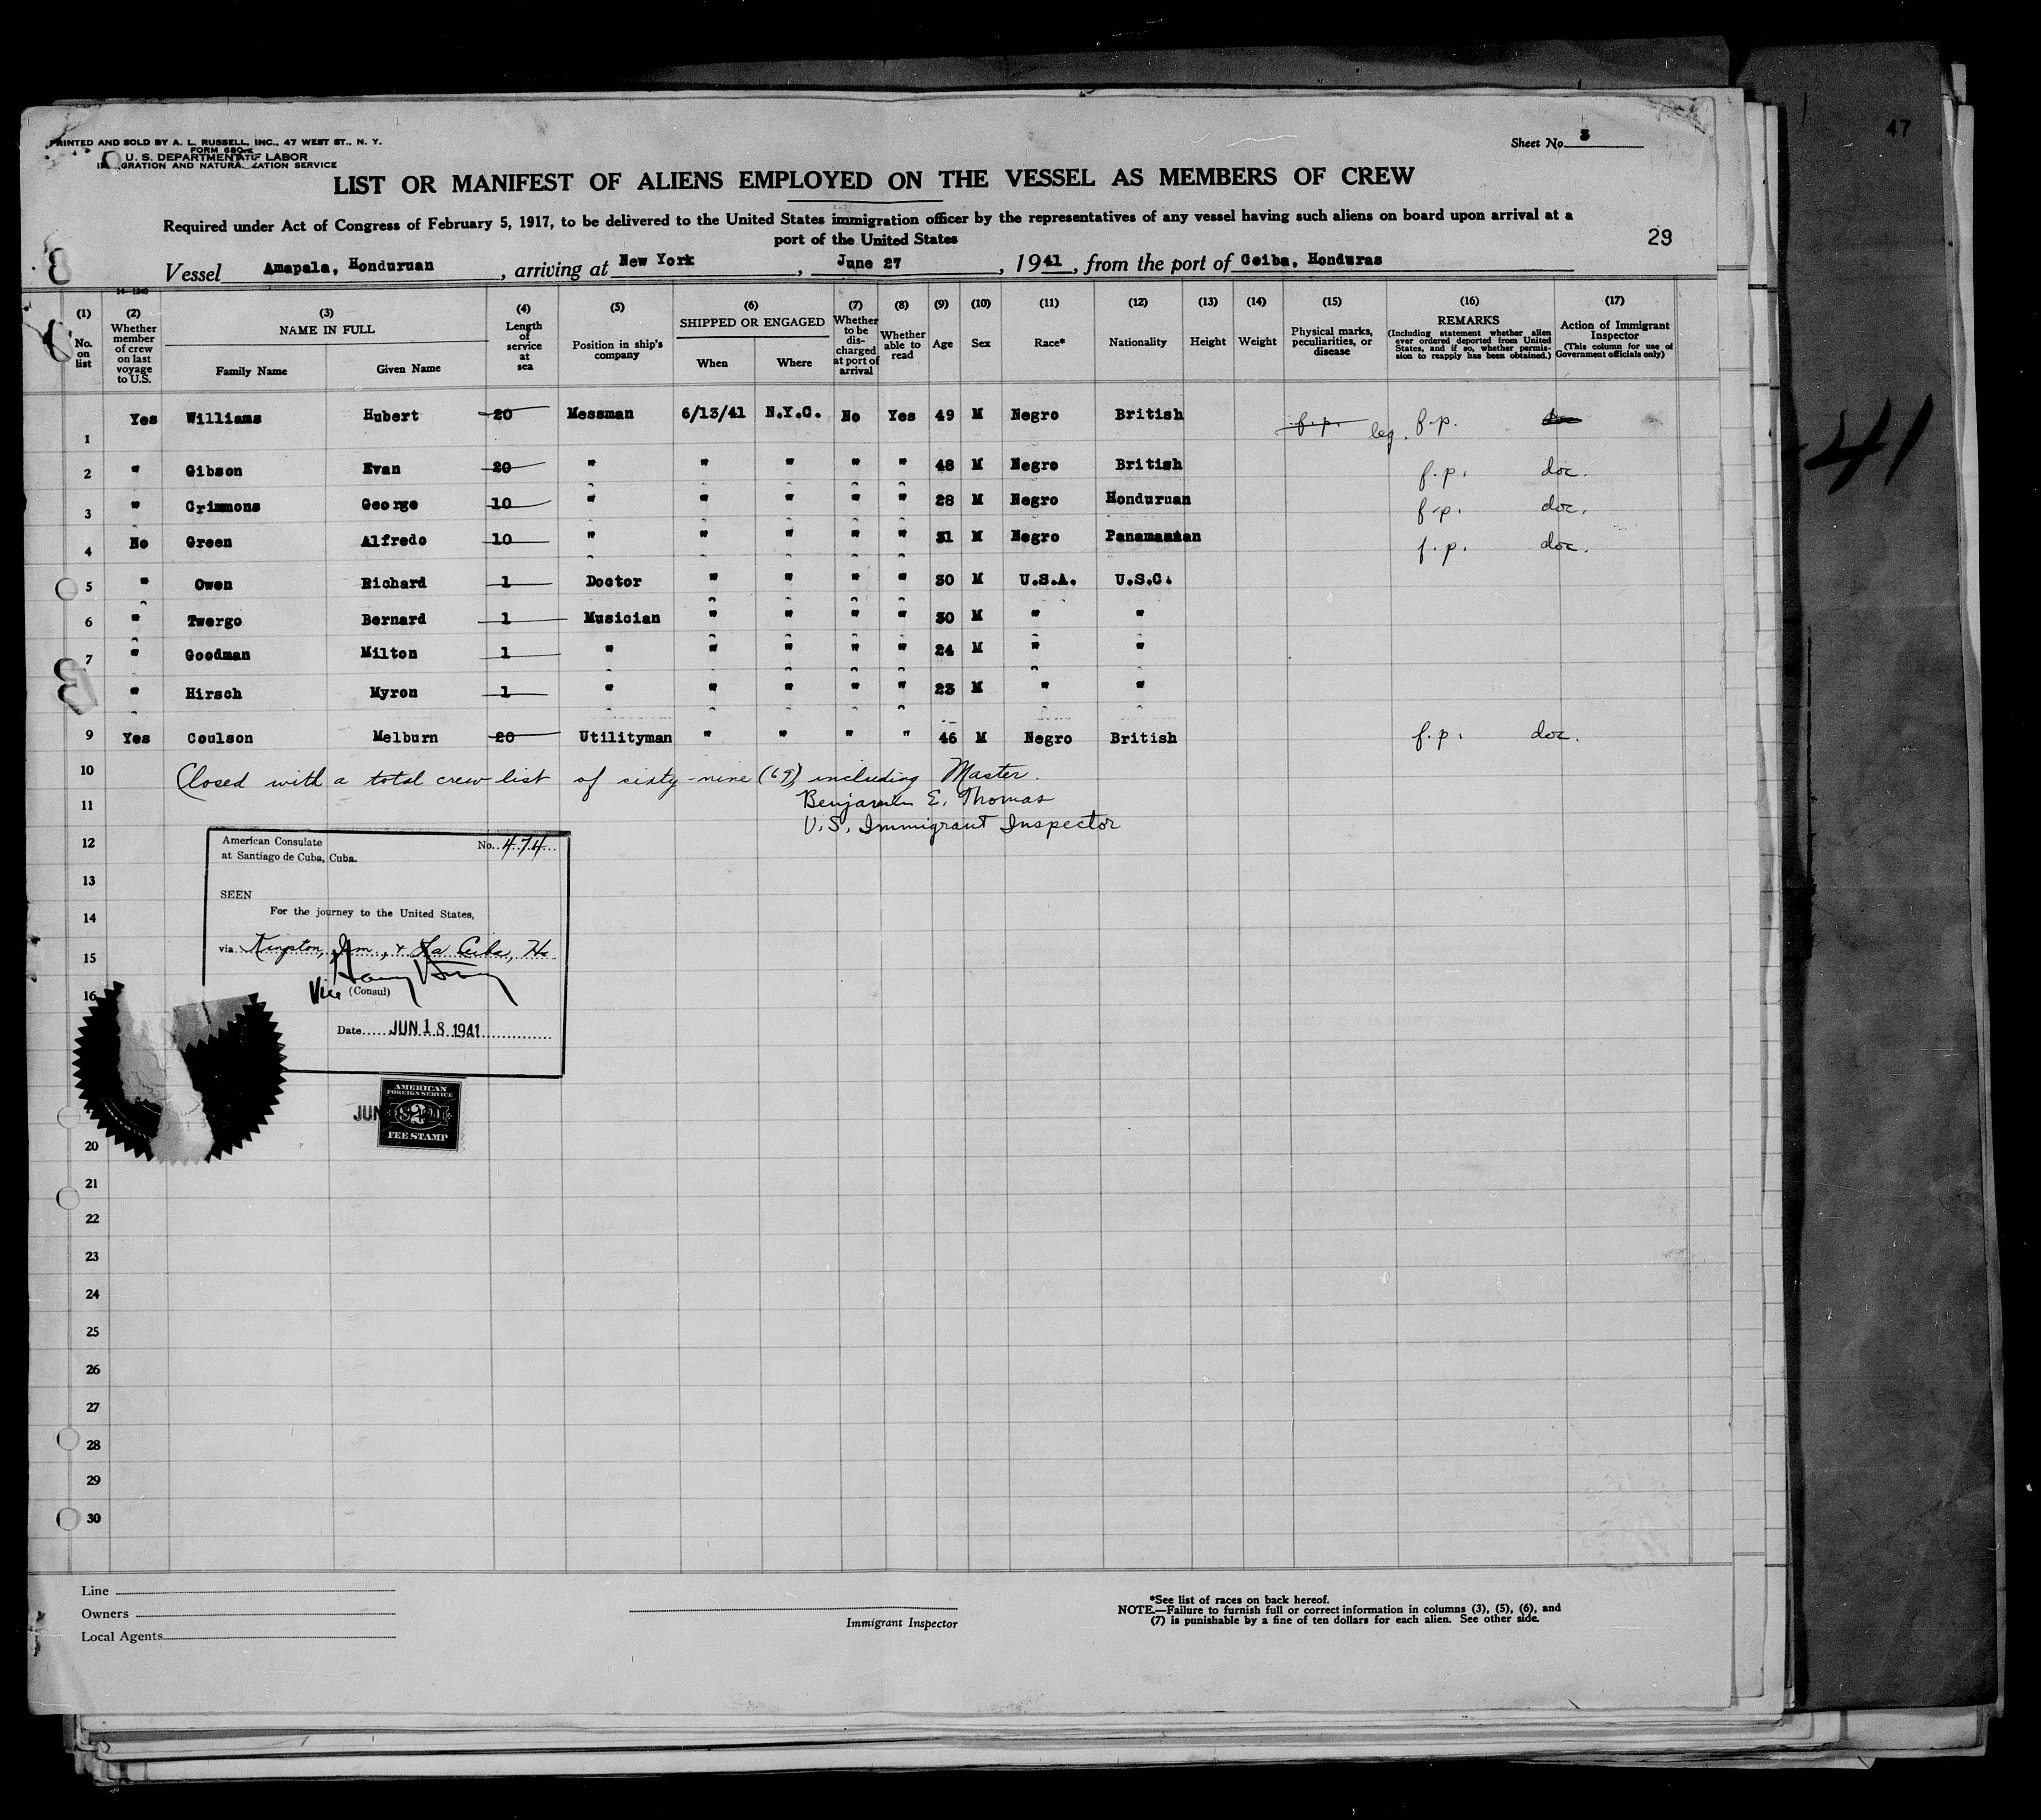 PRINTED AND SOLD BY A. L. RUSSELL, INC., 47 WEST ST., N. Y.
FORM 680
U. S. DEPARTMENT OF LABOR
GRATION AND NATURA ZATION SERVICE
Sheet No. 3
47
LIST OR MANIFEST OF ALIENS EMPLOYED ON THE VESSEL AS MEMBERS OF CREW
Required under Act of Congress of February 5, 1917, to be delivered to the United States immigration officer by the representatives of any vessel having such aliens on board upon arrival at a
port of the United States
29
Vessel Amapala, Honduruan, arriving at New York, June 27, 1941, from the port of Ceiba, Honduras
(1) No. on list
(2) Whether member of crew on last voyage to U.S.
(3) NAME IN FULL Family Name Given Name
(4) Length of service at sea
(5) Position in ship's company
(6) SHIPPED OR ENGAGED When Where
(7) Whether to be discharged at port of arrival
(8) Whether able to read
(9) Age
(10) Sex
(11) Race*
(12) Nationality
(13) Height
(14) Weight
(15) Physical marks, peculiarities, or disease
(16) REMARKS (Including statement whether alien ever ordered deported from United States, and if so, whether permission to reapply has been obtained.)
(17) Action of Immigrant Inspector (This column for use of Government officials only)
1 Yes Williams Hubert 20 Messman 6/13/41 N.Y.C. No Yes 49 M Negro British f.p. leg. f.p.
2 " Gibson Evan 20 " " " " " 48 M Negro British f.p. doc.
3 " Crimmons George 10 " " " " " 28 M Negro Honduruan f.p. doc.
4 No Green Alfredo 10 " " " " " 31 M Negro Panamanian f.p. doc.
5 " Owen Richard 1 Doctor " " " " 30 M U.S.A. U.S.C.
6 " Twergo Bernard 1 Musician " " " " 30 M " "
7 " Goodman Milton 1 " " " " " 24 M " "
" Hirsch Myron 1 " " " " " 23 M " "
9 Yes Coulson Melburn 20 Utilityman " " " " 46 M Negro British f.p. doc.
10 Closed with a total crew list of sixty-nine (69) including Master.
11 Benjamin E. Thomas
U.S. Immigrant Inspector
41
12
13
14
15
16
American Consulate No. 474
at Santiago de Cuba, Cuba.
SEEN
For the journey to the United States,
via Kingston, Jm., & La Ceiba, Ho
Vice (Consul)
Date JUN 18 1941
AMERICAN
FOREIGN SERVICE
JUN
2
FEE STAMP
20
21
22
23
24
25
26
27
28
29
30
Line
Owners
Local Agents
Immigrant Inspector
*See list of races on back hereof.
NOTE.—Failure to furnish full or correct information in columns (3), (5), (6), and
(7) is punishable by a fine of ten dollars for each alien. See other side.